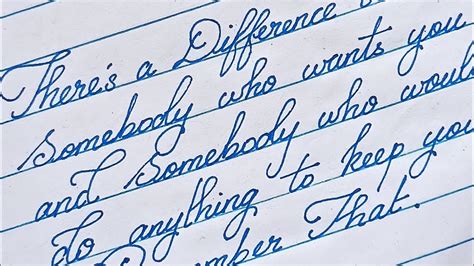 There's a Difference
Somebody who wants you
and Somebody who would
do anything to keep you
That.